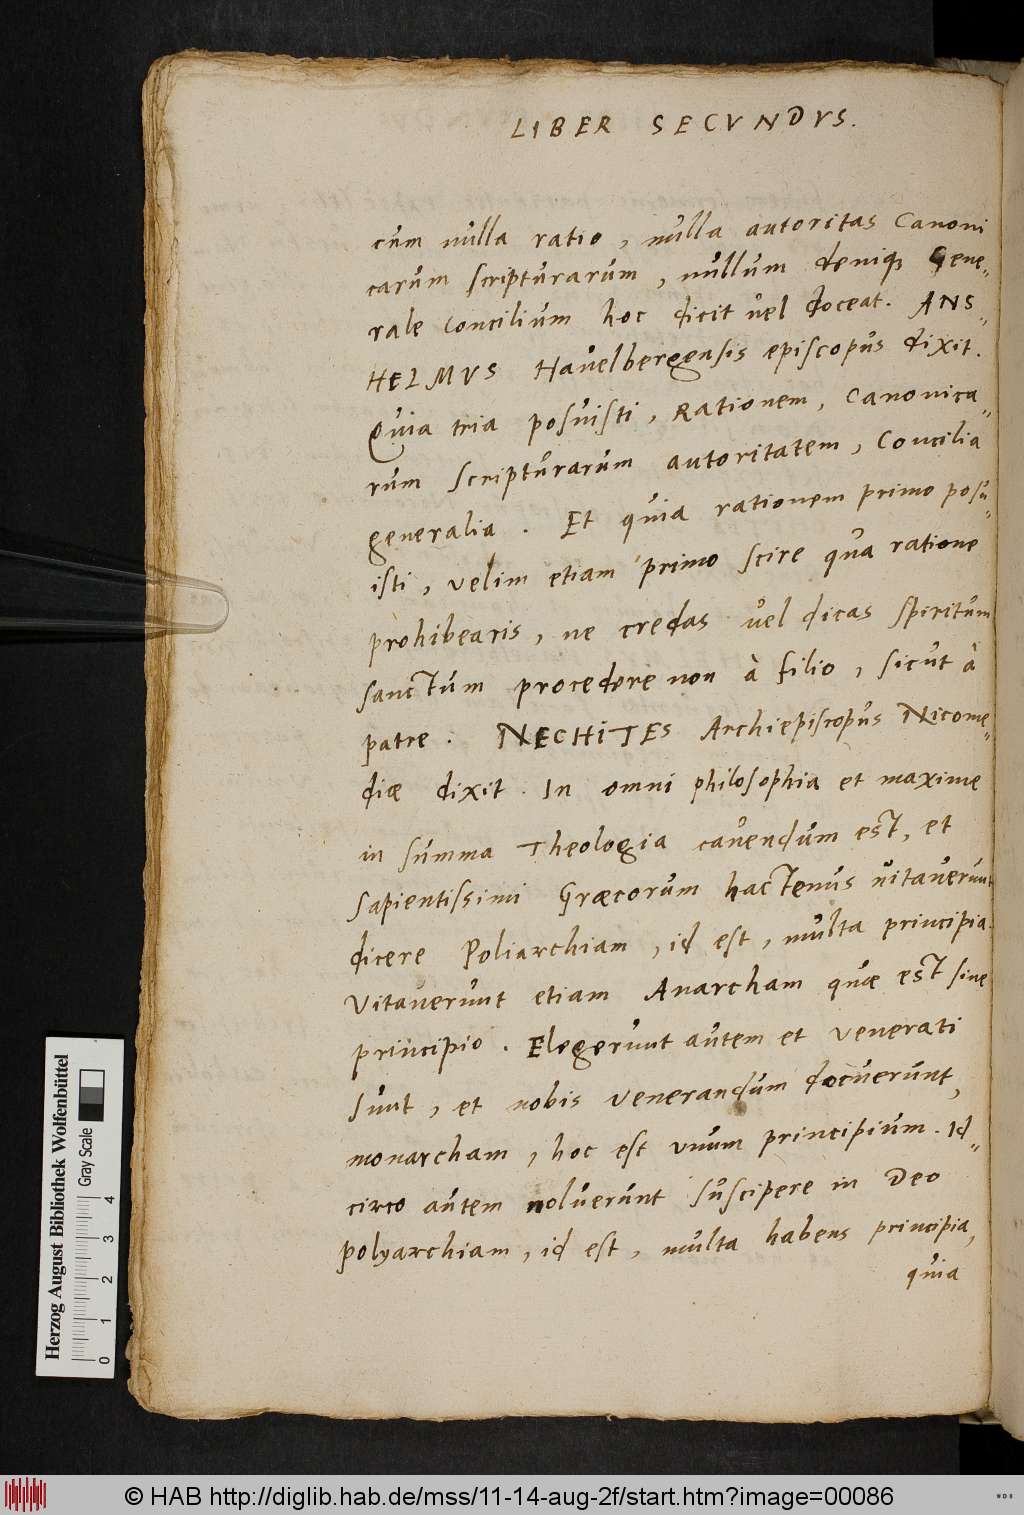 LIBER SECVNDVS.
cùm nulla ratio, nulla autoritas Canoni
carùm scripturarum, nullum deniq; Gene„
rale concilium hoc dicit vel doceat. ANS„
HELMVS Havelbergensis episcopus dixit.
Quia tria posuisti, Rationem, Canonica„
rum scripturarùm autoritatem, Concilia
generalia. Et quia rationem primo posu„
isti, velim etiam primo scire qua ratione
prohibearis, ne credas vel dicas spiritum
sanctum procedere non à filio, sicut à
patre. NECHITES Archiepiscopus Nicome„
diæ dixit. In omni philosophia et maxime
in summa Theologia cavendum est, et
sapientissimi Græcorum hactenus vitaverunt
dicere Poliarchiam, id est, multa principia.
Vitaverunt etiam Anarcham quæ est sine
principio. Elegerunt autem et venerati
sunt, et nobis venerandum docuerunt,
monarcham, hoc est vnum principium. Id„
circo autem noluerunt suscipere in Deo
polyarchiam, id est, multa habens principia,
quia
Herzog August Bibliothek Wolfenbüttel
Gray Scale
0 1 2 3 4
© HAB http://diglib.hab.de/mss/11-14-aug-2f/start.htm?image=00086